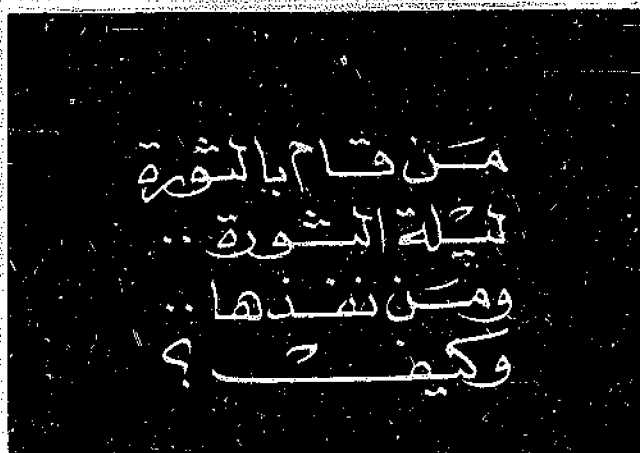 مَن قام بالثورة
ليلة الثورة ..
ومَن نفذها ..
وكيف ؟